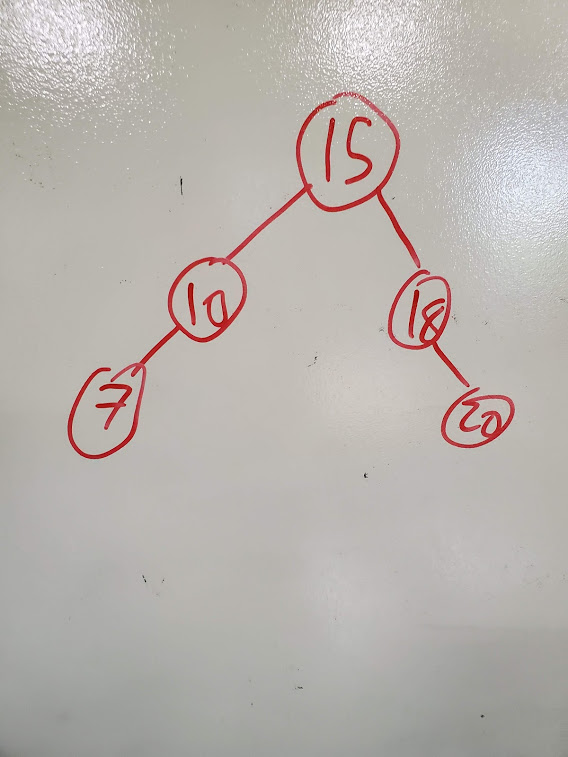 15
10
18
7
20